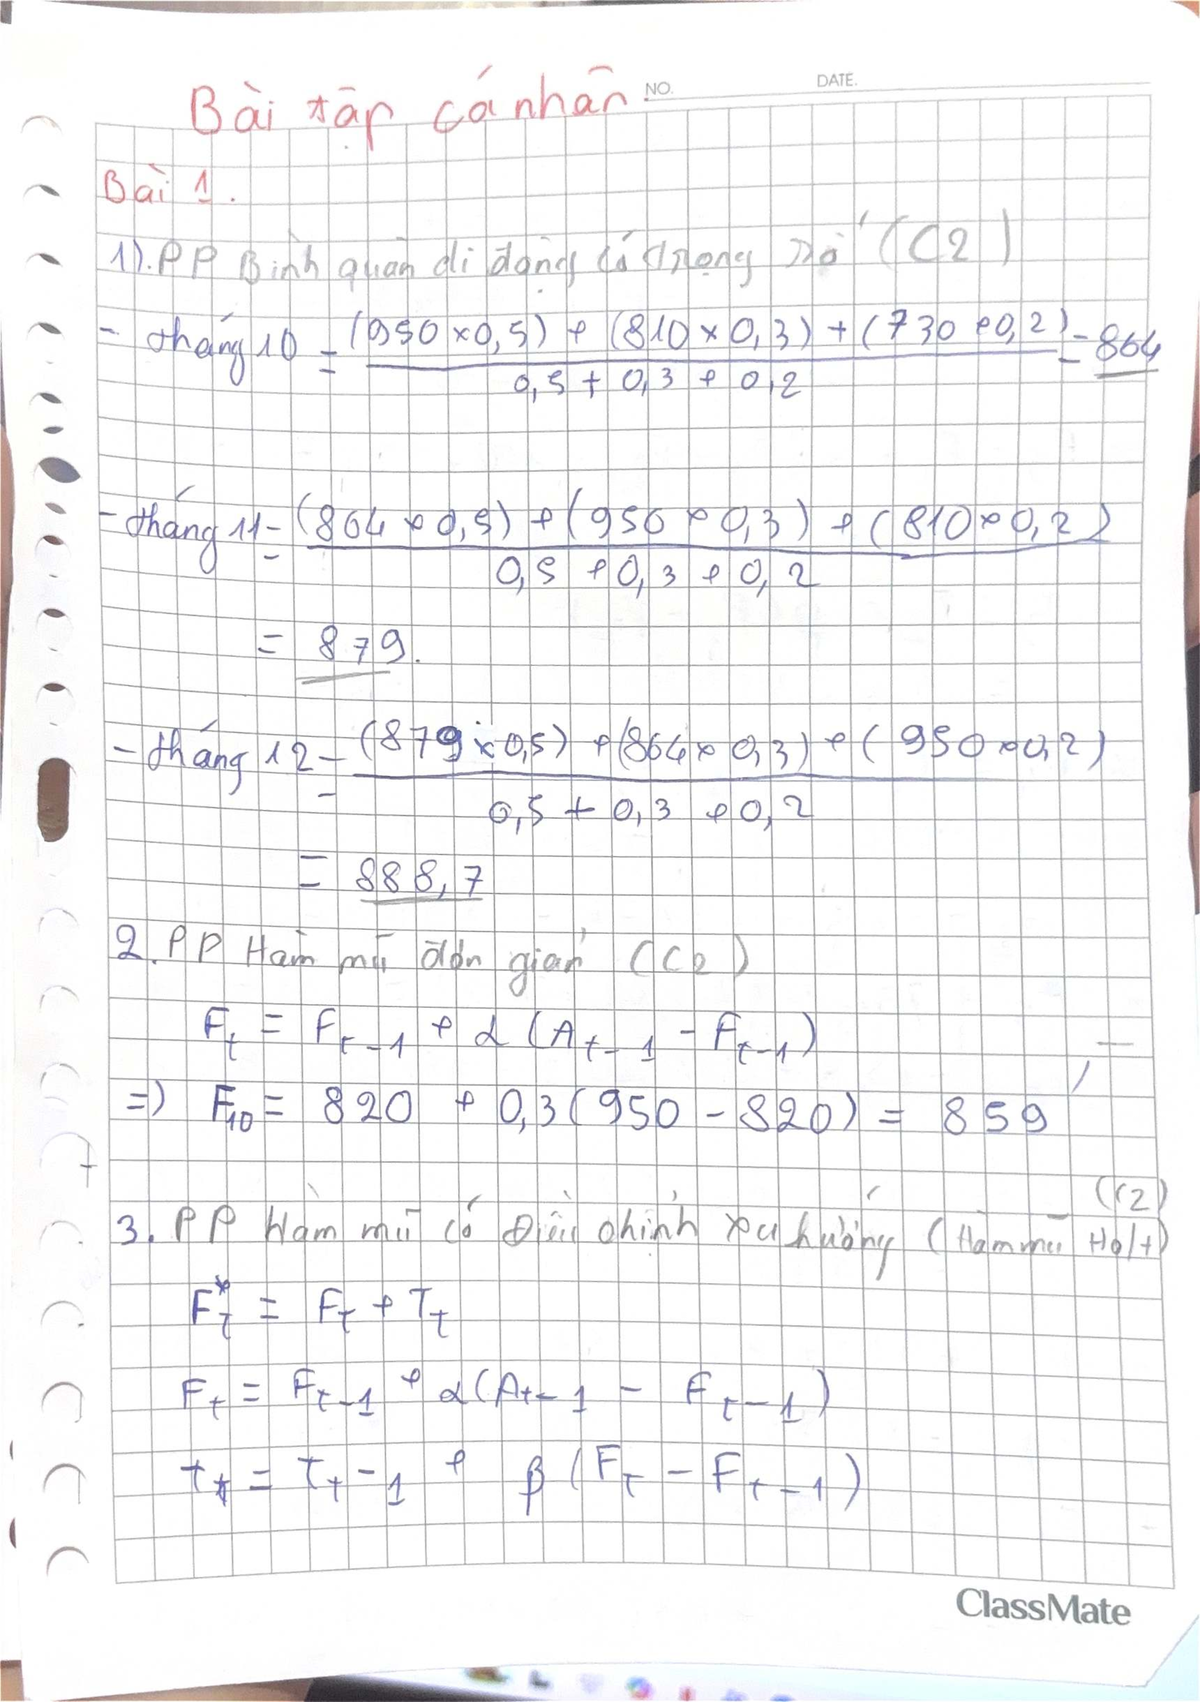 NO.
DATE.
Bài tập cá nhân
Bài 1.
1). PP Bình quân di động có trọng số (C2)
- tháng 10 = (950 x 0,5) + (810 x 0,3) + (730 x 0,2) = 864
0,5 + 0,3 + 0,2
- tháng 11 = (864 x 0,5) + (950 x 0,3) + (810 x 0,2)
0,5 + 0,3 + 0,2
= 879.
- tháng 12 = (879 x 0,5) + (864 x 0,3) + (950 x 0,2)
0,5 + 0,3 + 0,2
= 888,7
2. PP Hàm mũ đơn giản (C2)
Ft = Ft-1 + α (At-1 - Ft-1)
=) F10 = 820 + 0,3 (950 - 820) = 859
(C2)
3. PP Hàm mũ có Điều chỉnh xu hướng (Hàm mũ Holt)
F*t = Ft + Tt
Ft = Ft-1 + α (At-1 - Ft-1)
Tt = Tt-1 + β (Ft - Ft-1)
ClassMate